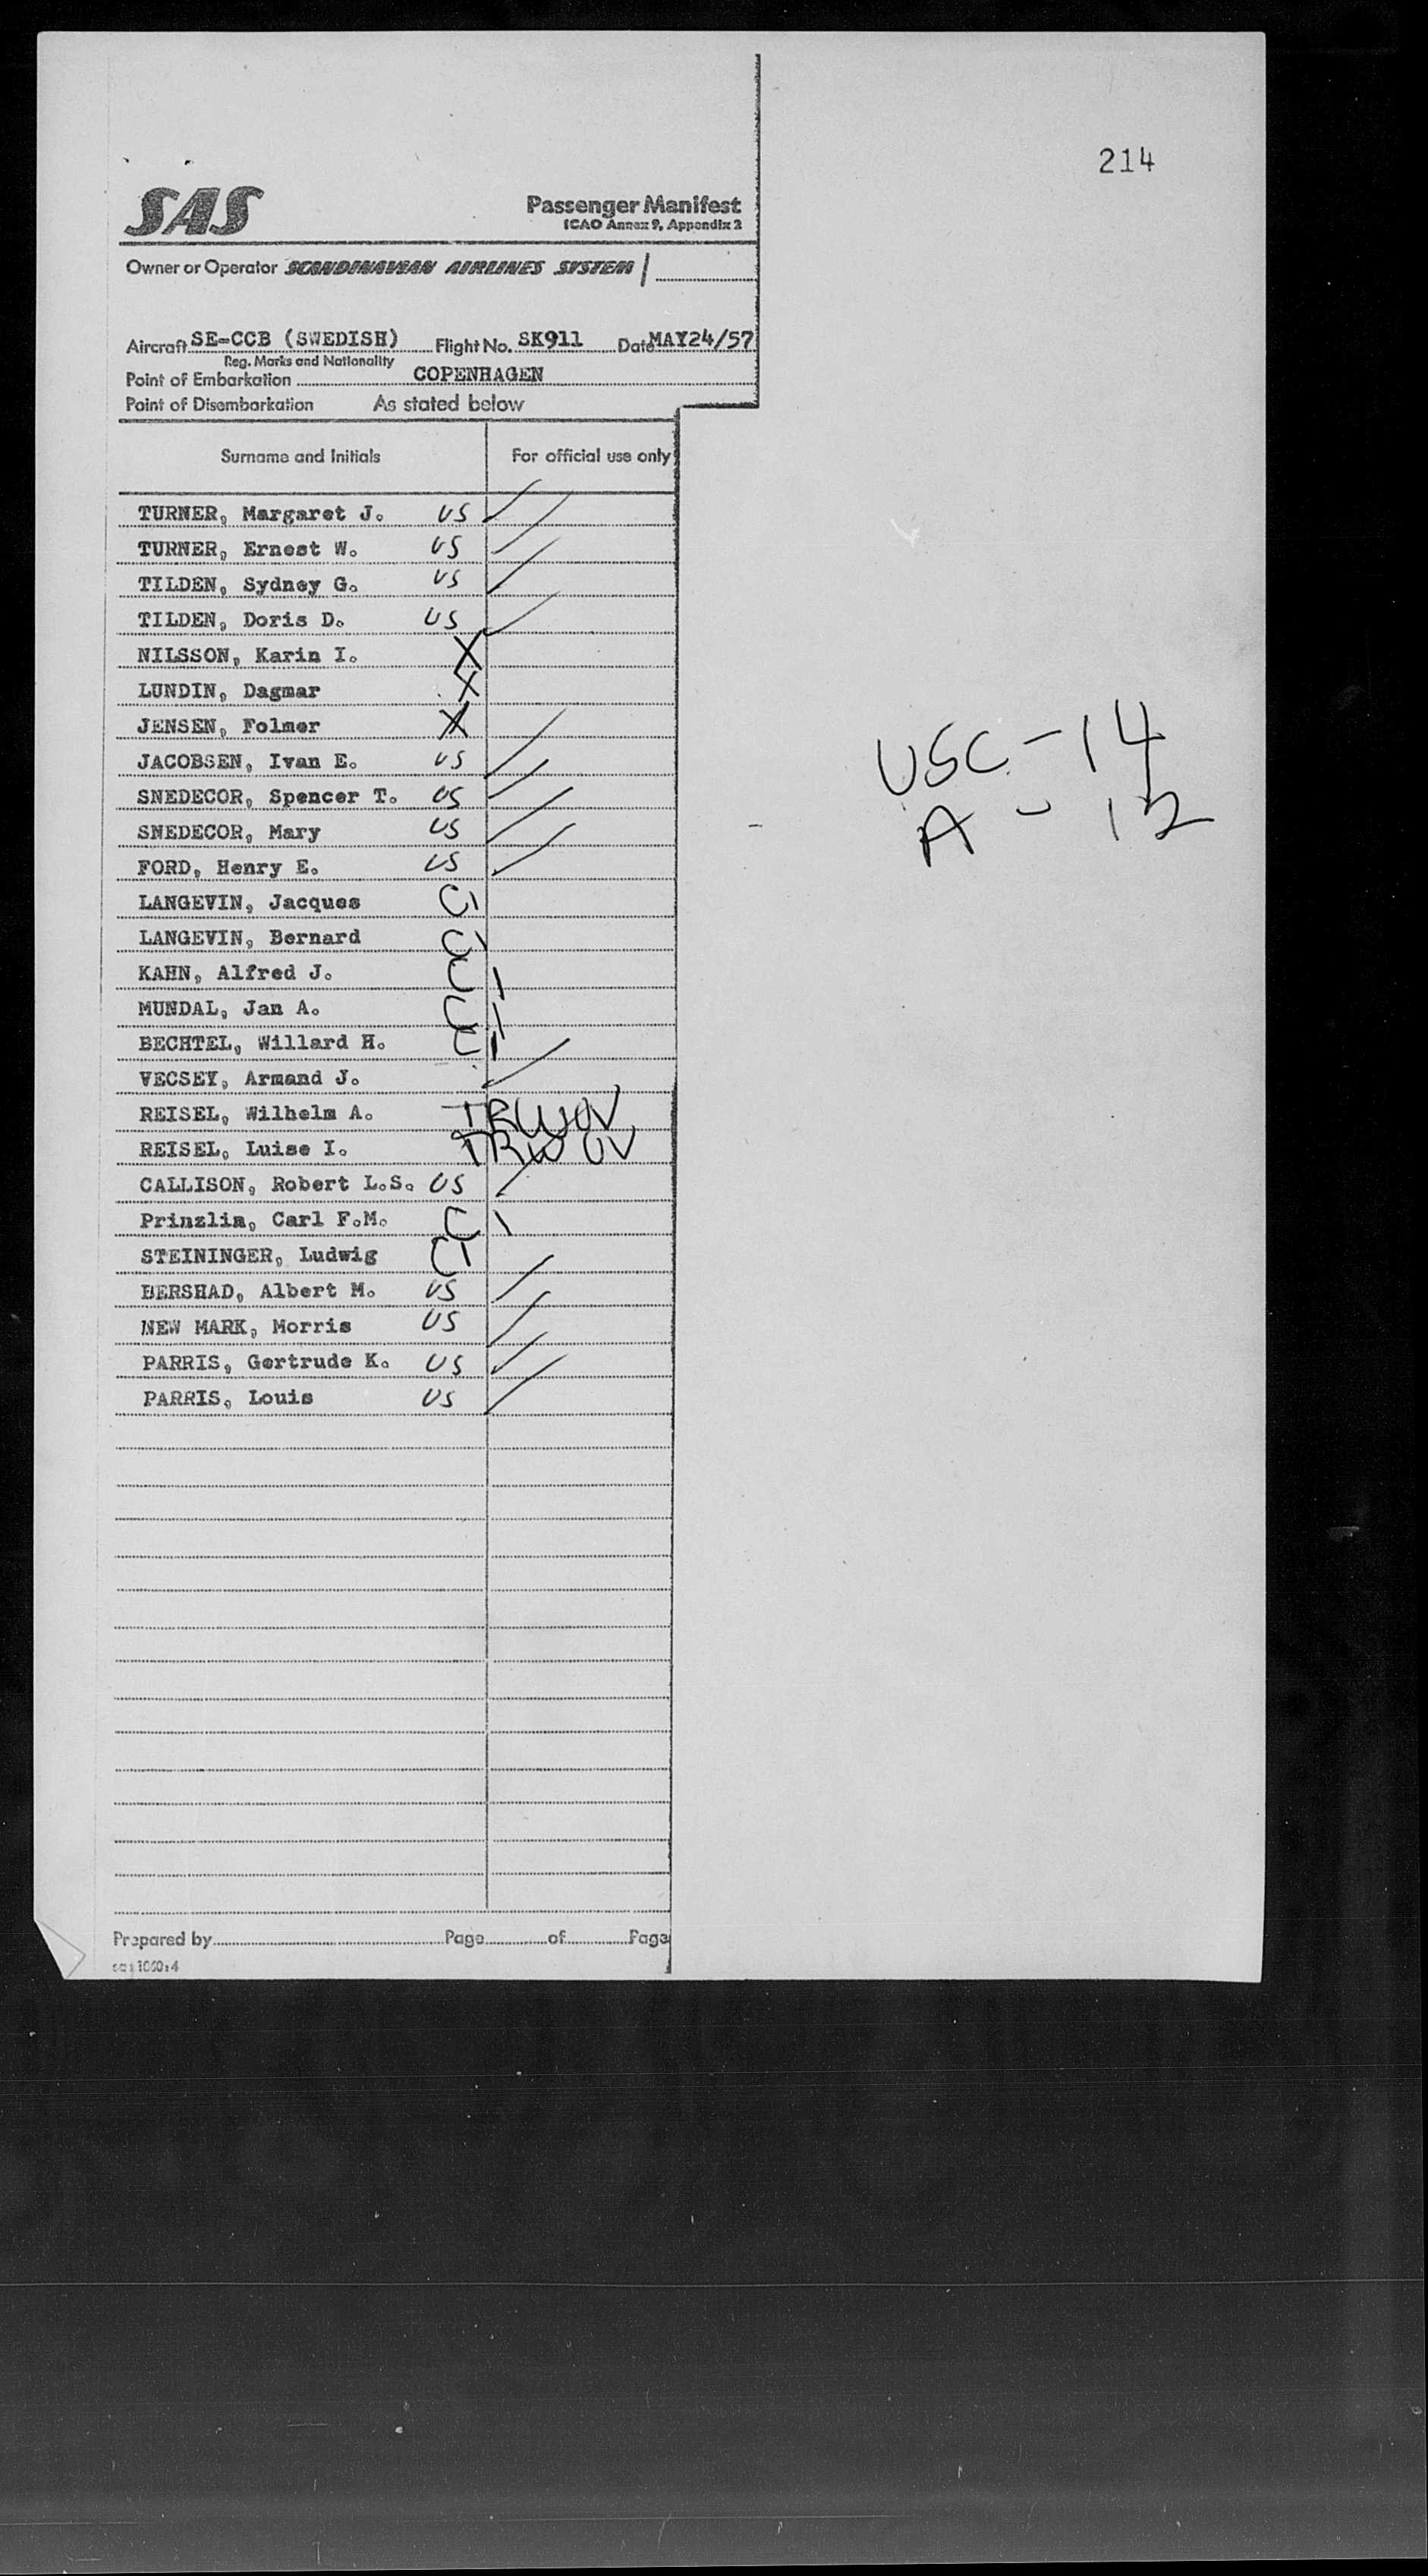 214
SAS
Passenger Manifest
ICAO Annex 9, Appendix 2
Owner or Operator SCANDINAVIAN AIRLINES SYSTEM
Aircraft SE-CCB (SWEDISH) Flight No. SK911 Date MAY24/57
Reg. Marks and Nationality
Point of Embarkation COPENHAGEN
Point of Disembarkation As stated below
Surname and Initials For official use only
TURNER, Margaret J. US
TURNER, Ernest W. US
TILDEN, Sydney G. US
TILDEN, Doris D. US
NILSSON, Karin I. X
LUNDIN, Dagmar X
JENSEN, Folmer X
JACOBSEN, Ivan E. US
SNEDECOR, Spencer T. US
SNEDECOR, Mary US
FORD, Henry E. US
LANGEVIN, Jacques C1
LANGEVIN, Bernard C1
KAHN, Alfred J. C1
MUNDAL, Jan A. C1
BECHTEL, Willard H. C1
VECSEY, Armand J.
REISEL, Wilhelm A. TRWOV
REISEL, Luise I. TRWOV
CALLISON, Robert L.S. US
Prinzlin, Carl F.M. C1
STEININGER, Ludwig C1
BERSHAD, Albert M. US
NEW MARK, Morris US
PARRIS, Gertrude K. US
PARRIS, Louis US
USC-14
A - 12
Prepared by Page of Page